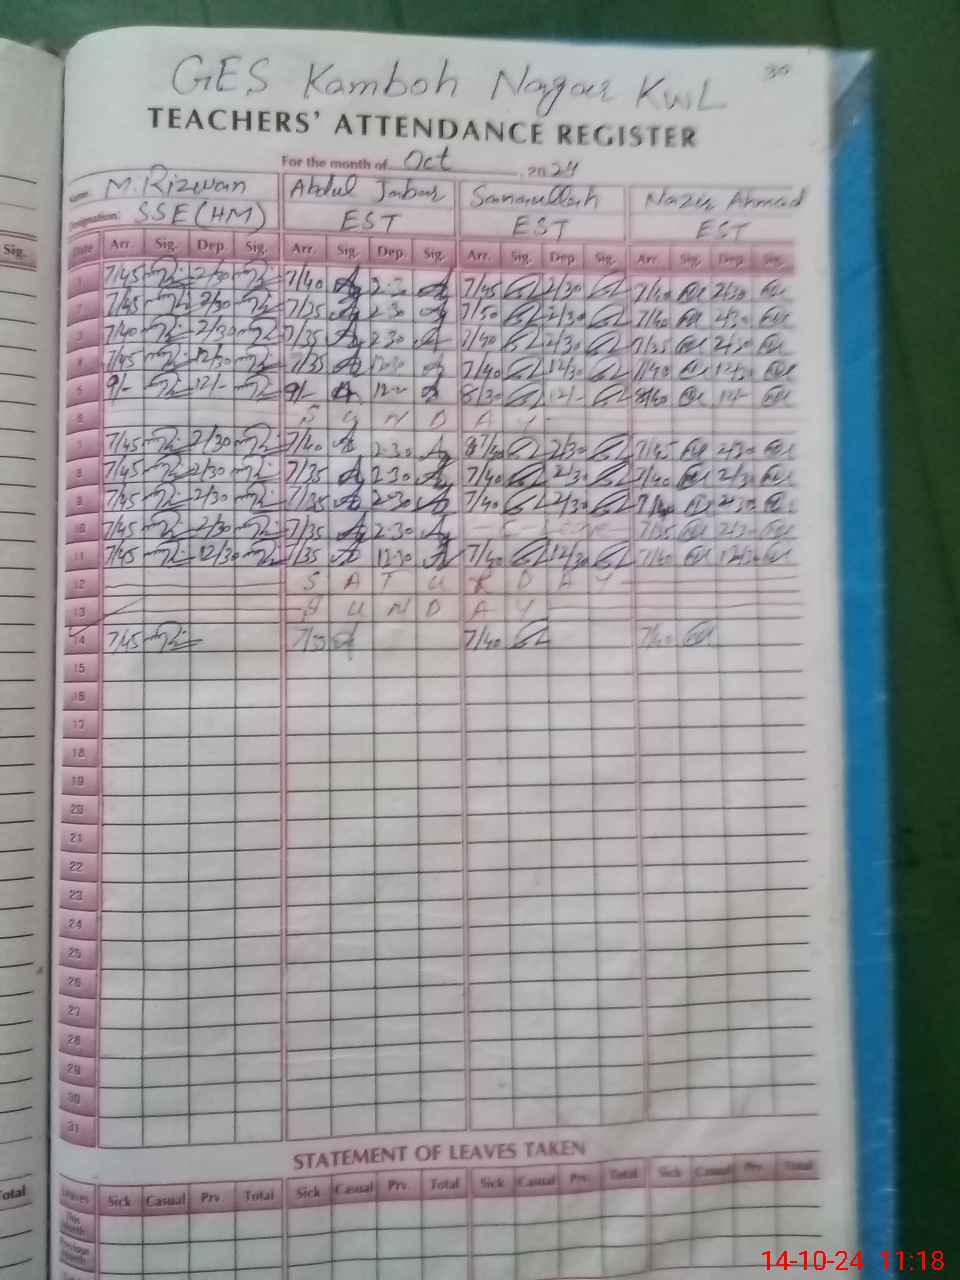 GES Kamboh Nagar KWL 30
TEACHERS' ATTENDANCE REGISTER
For the month of Oct, 2024
Name: M.Rizwan Abdul Jabar Sanaullah Nazir Ahmad
Designation: SSE(HM) EST EST EST
Sig. Date Arr. Sig. Dep. Sig. Arr. Sig. Dep. Sig. Arr. Sig. Dep Sig. Arr. Sig. Dep. Sig.
1 7/45 2/30 7/40 2-30 7/45 2/30 7/40 2/30
2 7/45 2/30 7/35 2-30 7/50 2/30 7/40 2/30
3 7/40 2/30 7/35 2 30 7/40 2/30 7/35 2/30
4 7/45 12/30 7/35 12-30 7/40 12/30 7/40 12/30
5 9/- 12/- 9/- 12-- 8/30 12/- 12/-
6 S U N D A Y
7 7/45 2/30 7/40 2-30 7/40 2/30 7/45 2/30
8 7/45 2/30 7/35 2-30 7/40 2/30 7/40 2/30
9 7/45 2/30 7/35 2-30 7/40 2/30 7/40 2-30
10 7/45 2/30 7/35 2-30 C Leave 7/35 2/30
11 7/45 12/30 7/35 12-30 7/40 12/30 7/40 12/30
12 S A T U R D A Y
13 S U N D A Y
14 7/45 7/35 7/40 7/40
15
16
17
18
19
20
21
22
23
24
25
26
27
28
29
30
31
STATEMENT OF LEAVES TAKEN
Total Leaves Sick Casual Prv. Total Sick Casual Prv. Total Sick Casual Prv. Total Sick Casual Prv. Total
This Month
Previous
14-10-24 11:18